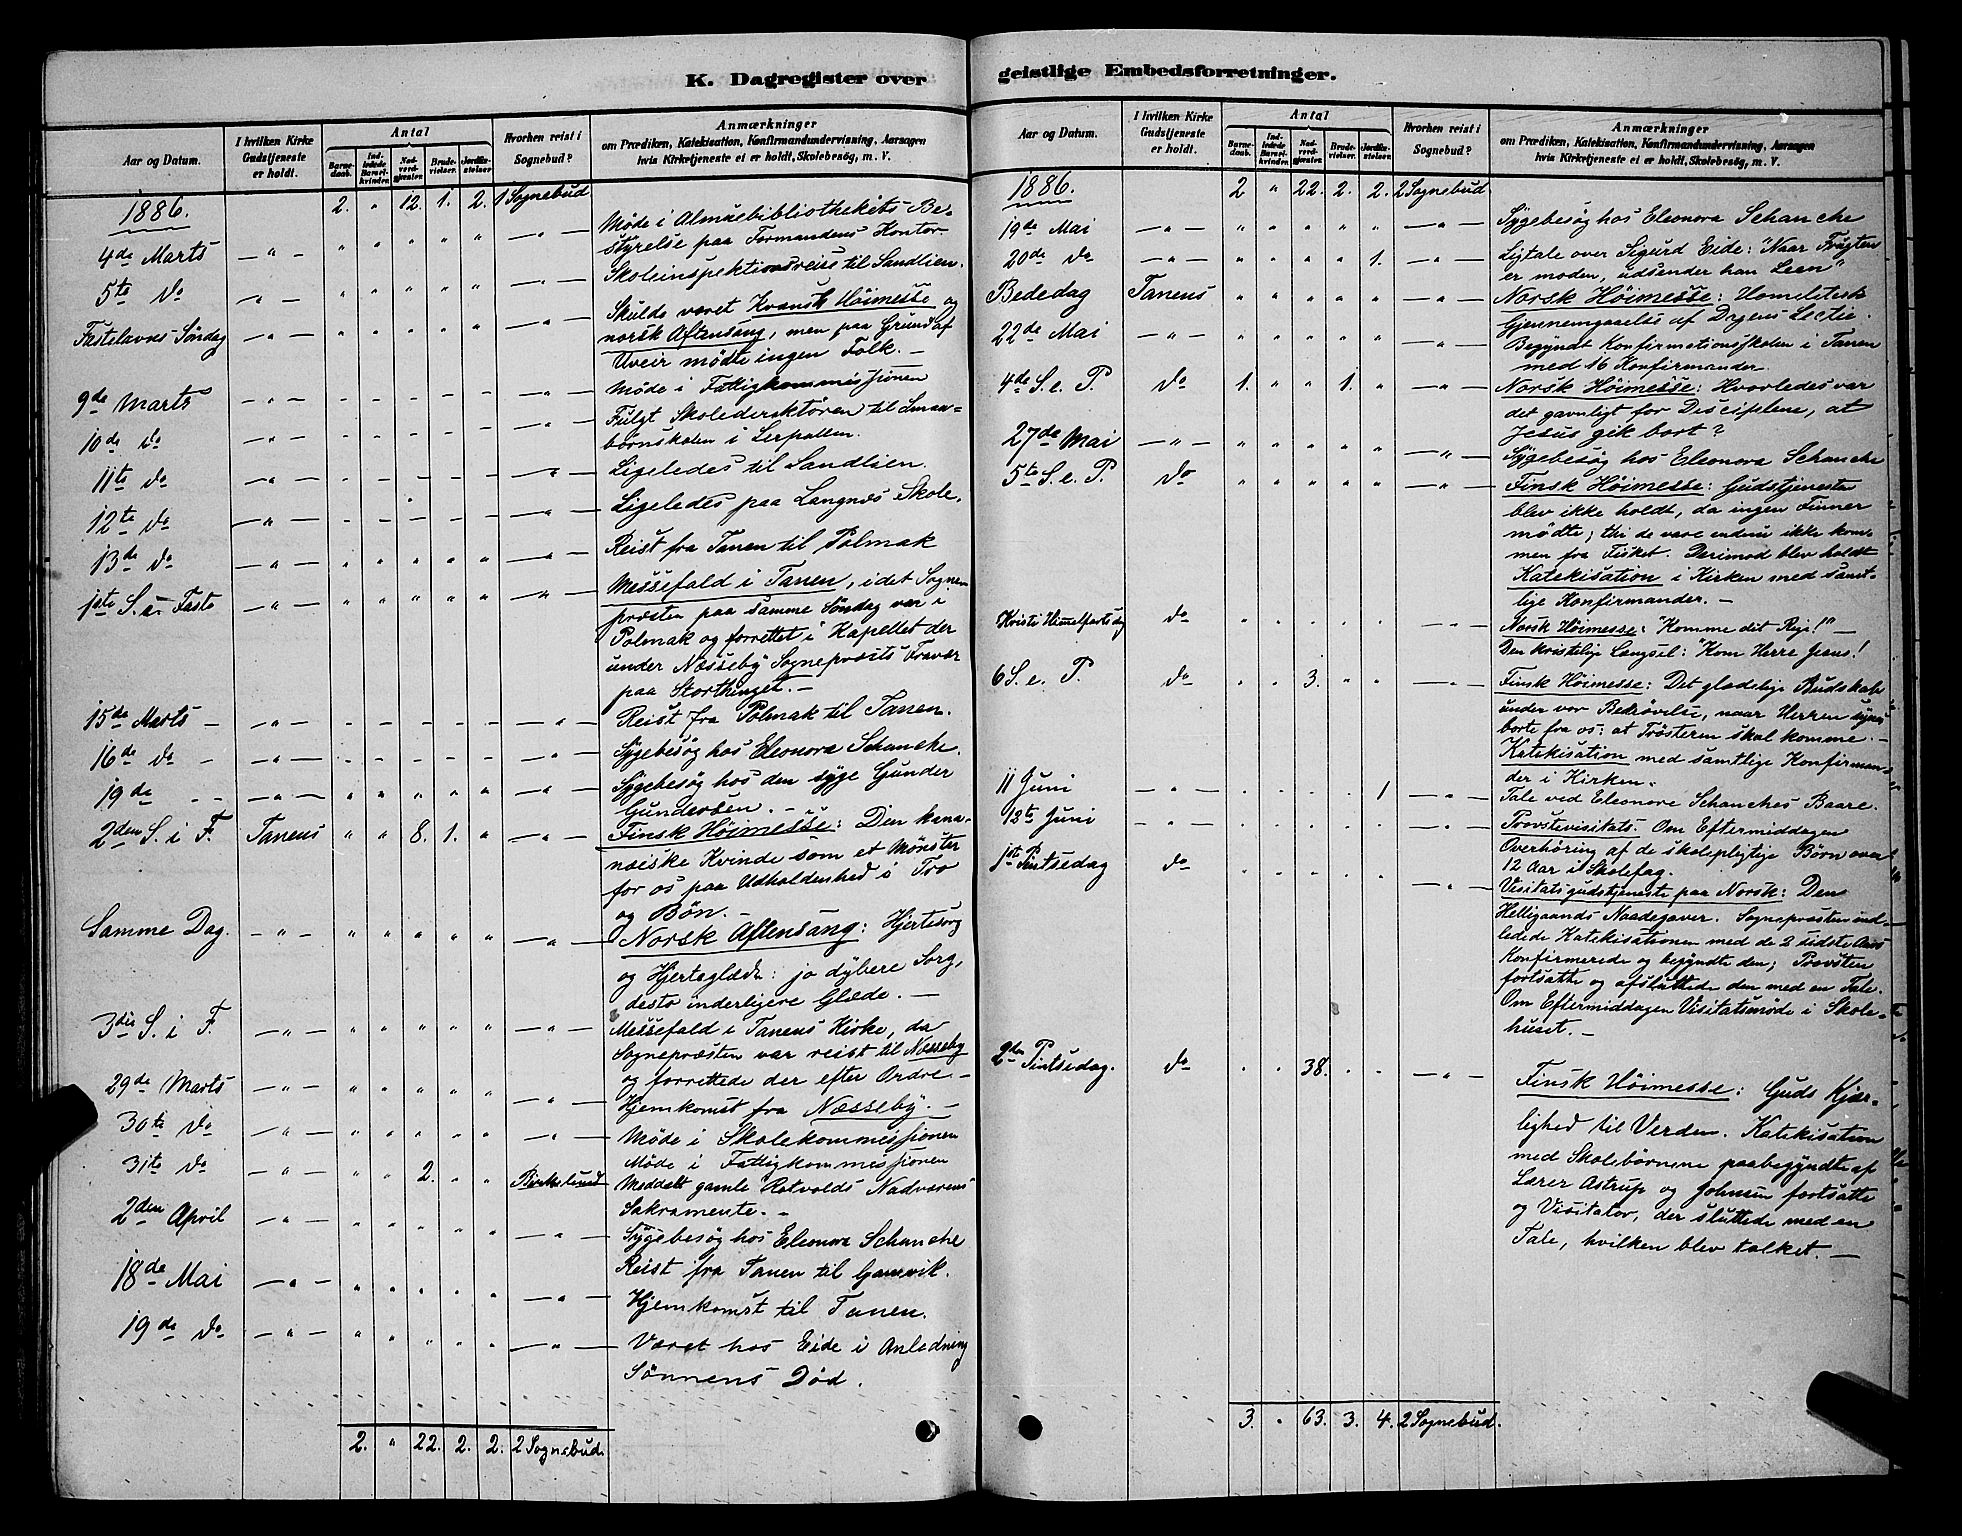 K. Dagregister over
Aar og Datum.
I hvilken Kirke Gudstjeneste er holdt.
Antal
Barnedaab.
Indledede Barselkvinder.
Nadverdgjester.
Brudevielser.
Jordfæstelser.
Hvorhen reist i Sognebud?
Anmærkninger
om Prædiken, Katekisation, Konfirmandundervisning, Aarsagen
hvis Kirketjeneste ei er holdt, Skolebesøg, m. V.
1886. 2. " 12. 1. 2. 1 Sognebud
4de Marts Møde i Almuebibliothekets Be-
styrelse paa Formandens Kontor.
5te do Skoleinspektionsreise til Sandlien.
Fastelavns Søndag Skulde været Kvænsk Høimesse og
norsk Aftensang, men paa Grund af
Uveir mødte ingen Folk. —
9de Marts Møde i Fattigkommissionen
10de do Fulgt Skoledirektøren til Smaa-
børnskolen i Lerpollen.
11te do Ligeledes til Sandlien.
12te do Ligeledes paa Langnæs Skole.
13de do Reist fra Tanen til Polmak
1ste S. i Faste Messefald i Tanen, idet Sogne-
præsten paa samme Søndag var i
Polmak og forrettet i Kapellet der
under Næsseby Sognepræsts Fravær
paa Storthinget. —
15de Marts Reist fra Polmak til Tanen.
16de do Sygebesøg hos Eleonora Schanche.
19de Sygebesøg hos den syge Gunder
Gundersen. —
2den S. i F. Tanens " " 8. 1. " Finsk Høimesse: Den kana-
næiske Kvinde som et Mønster
for os paa Udholdenhed i Tro
og Bøn. —
Samme Dag. Norsk Aftensang: Hjertesorg
og Hjerteglæde: jo dybere Sorg,
desto inderligere Glæde. —
3die S. i F. Messefald i Tanens Kirke, da
Sognepræsten var reist til Næsseby
og forrettede der efter Ordre —
29de Marts Hjemkomst fra Næsseby. —
30te do Møde i Skolekommissionen
31te do 2. Møde i Fattigkommissionen
Birkelund Meddelt gamle Rotvolds Nadverens
Sakramente. —
2den April Sygebesøg hos Eleonora Schanche
Reist fra Tanen til Gamvik.
18de Mai Hjemkomst til Tanen.
19de do Været hos Eide i Anledning
Sønnens Død.
2. " 22. 2. 2. 2 Sognebud.
geistlige Embedsforretninger.
Aar og Datum.
I hvilken Kirke Gudstjeneste er holdt.
Antal
Barnedaab.
Indledede Barselkvinder.
Nadverdgjester.
Brudevielser.
Jordfæstelser.
Hvorhen reist i Sognebud?
Anmærkninger
om Prædiken, Katekisation, Konfirmandundervisning, Aarsagen
hvis Kirketjeneste ei er holdt, Skolebesøg, m. V.
1886. 2 " 22. 2. 2. 2 Sognebud
19de Mai Sygebesøg hos Eleonora Schanche
20de do 1. Ligtale over Sigurd Eide: "Naar Frugten
er moden, udsender han Leen"
Bededag Tanens Norsk Høimesse: Homiletisk
Gjennemgaaelse af Dagens Lectie.
22de Mai Begyndt Konfirmationsskolen i Tanen
med 16 Konfirmander.
4de S. e. P. do 1. " " 1. " Norsk Høimesse: Hvorledes var
det gavnligt for Disciplene, at
Jesus gik bort?
27de Mai Sygebesøg hos Eleonora Schanche
5te S. e. P. do Finsk Høimesse: Gudstjenesten
blev ikke holdt, da ingen Finner
mødte; thi de vare endnu ikke kom-
men fra Fisket. Derimod blev holdt
Katekisation i Kirken med samt-
lige Konfirmander. —
Kristi Himelfartsdag do Norsk Høimesse: "Komme dit Rige!" —
Den kristelige Længsel: "Kom Herre Jesus!
6 S. e. P. do 3. Finsk Høimesse: Det glædelige Budskab
under vor Bedrøvelse, naar Herren synes
borte fra os: at Trøsteren skal komme. —
Katekisation med samtlige Konfirman-
der i Kirken.
11 Juni 1 Tale ved Eleonore Schanches Baare.
12te Juni Provstevisitats. Om Eftermiddagen
Overhøring af de skolepligtige Børn over
12 Aar i Skolefag.
1ste Pintsedag do Visitatsgudstjeneste paa Norsk: Den
Helligaands Naadegaver. Sognepræsten ind-
ledede Katekisationen med de 2 sidste Aars
Konfirmerede og begyndte den; Provsten
fortsatte og afsluttede den med en Tale.
Om Eftermiddagen Visitatsmøde i Skole-
huset. —
2den Pintsedag. do 38. Finsk Høimesse: Guds Kjær-
lighed til Verden. Katekisation
med Skolebørnene paabegyndte af
Lærer Astrup og Johnsen fortsatte
og Visitator, der sluttede med en
Tale, hvilken blev tolket. —
3. " 63. 3. 4. 2 Sognebud.